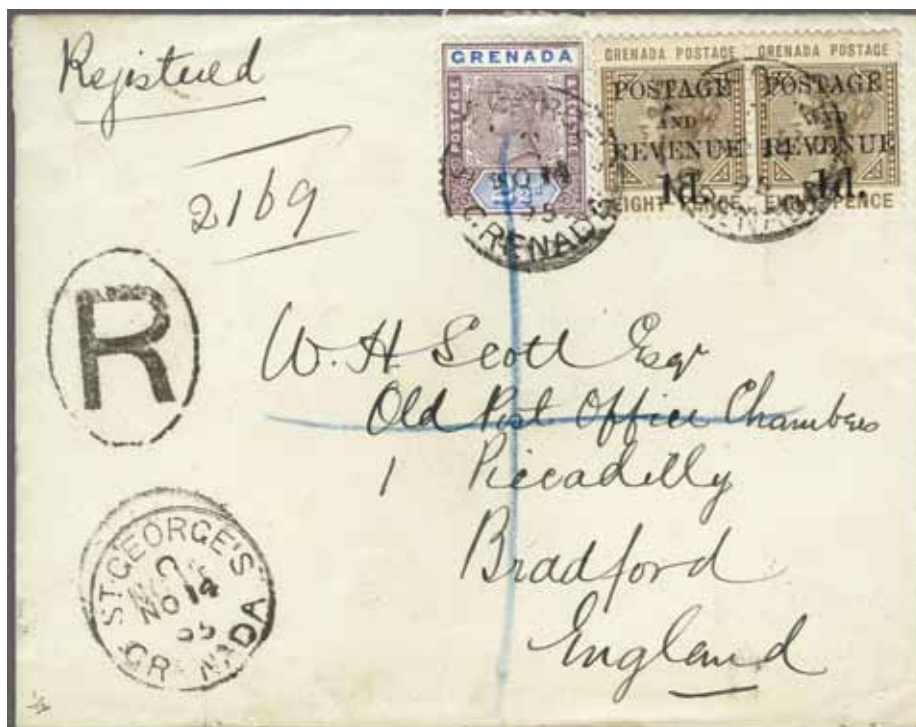 Registered
2169
GRENADA
POSTAGE
GRENADA POSTAGE
POSTAGE
AND
REVENUE
1d.
EIGHT PENCE
GRENADA POSTAGE
POSTAGE
AND
REVENUE
1d.
EIGHT PENCE
NO 14
95
GRENADA
R
W. H. Scott Esqr
Old Post Office Chambers
1 Piccadilly
Bradford
England
ST. GEORGE'S
C
NO 14
95
GRENADA